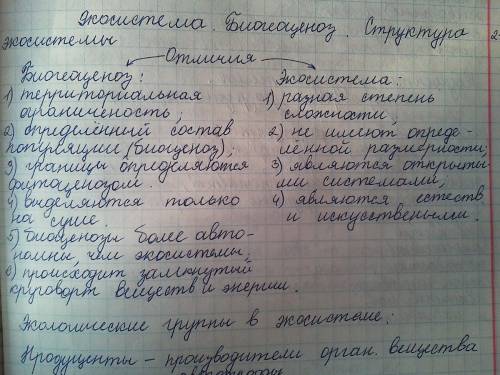 Экосистема. Биогеоценоз. Структура
экосистемы
Отличия
Биогеоценоз:
1) территориальная
ограниченость,
2) определённый состав
популяции (биоценоз);
3) границы определяются
фитоценозом.
4) выделяются только
на суше.
5) биоценозы более авто-
номны, чем экосистемы,
6) происходит замкнутый
круговорт веществ и энергии.
Экосистема:
1) разная степень
сложности,
2) не имеют опреде-
лённой размерности;
3) являются открыты
ми системами,
4) являются естеств
и искуствеными.
Экологические группы в экосистеме:
Продуценты – производители орган. вещества
2-